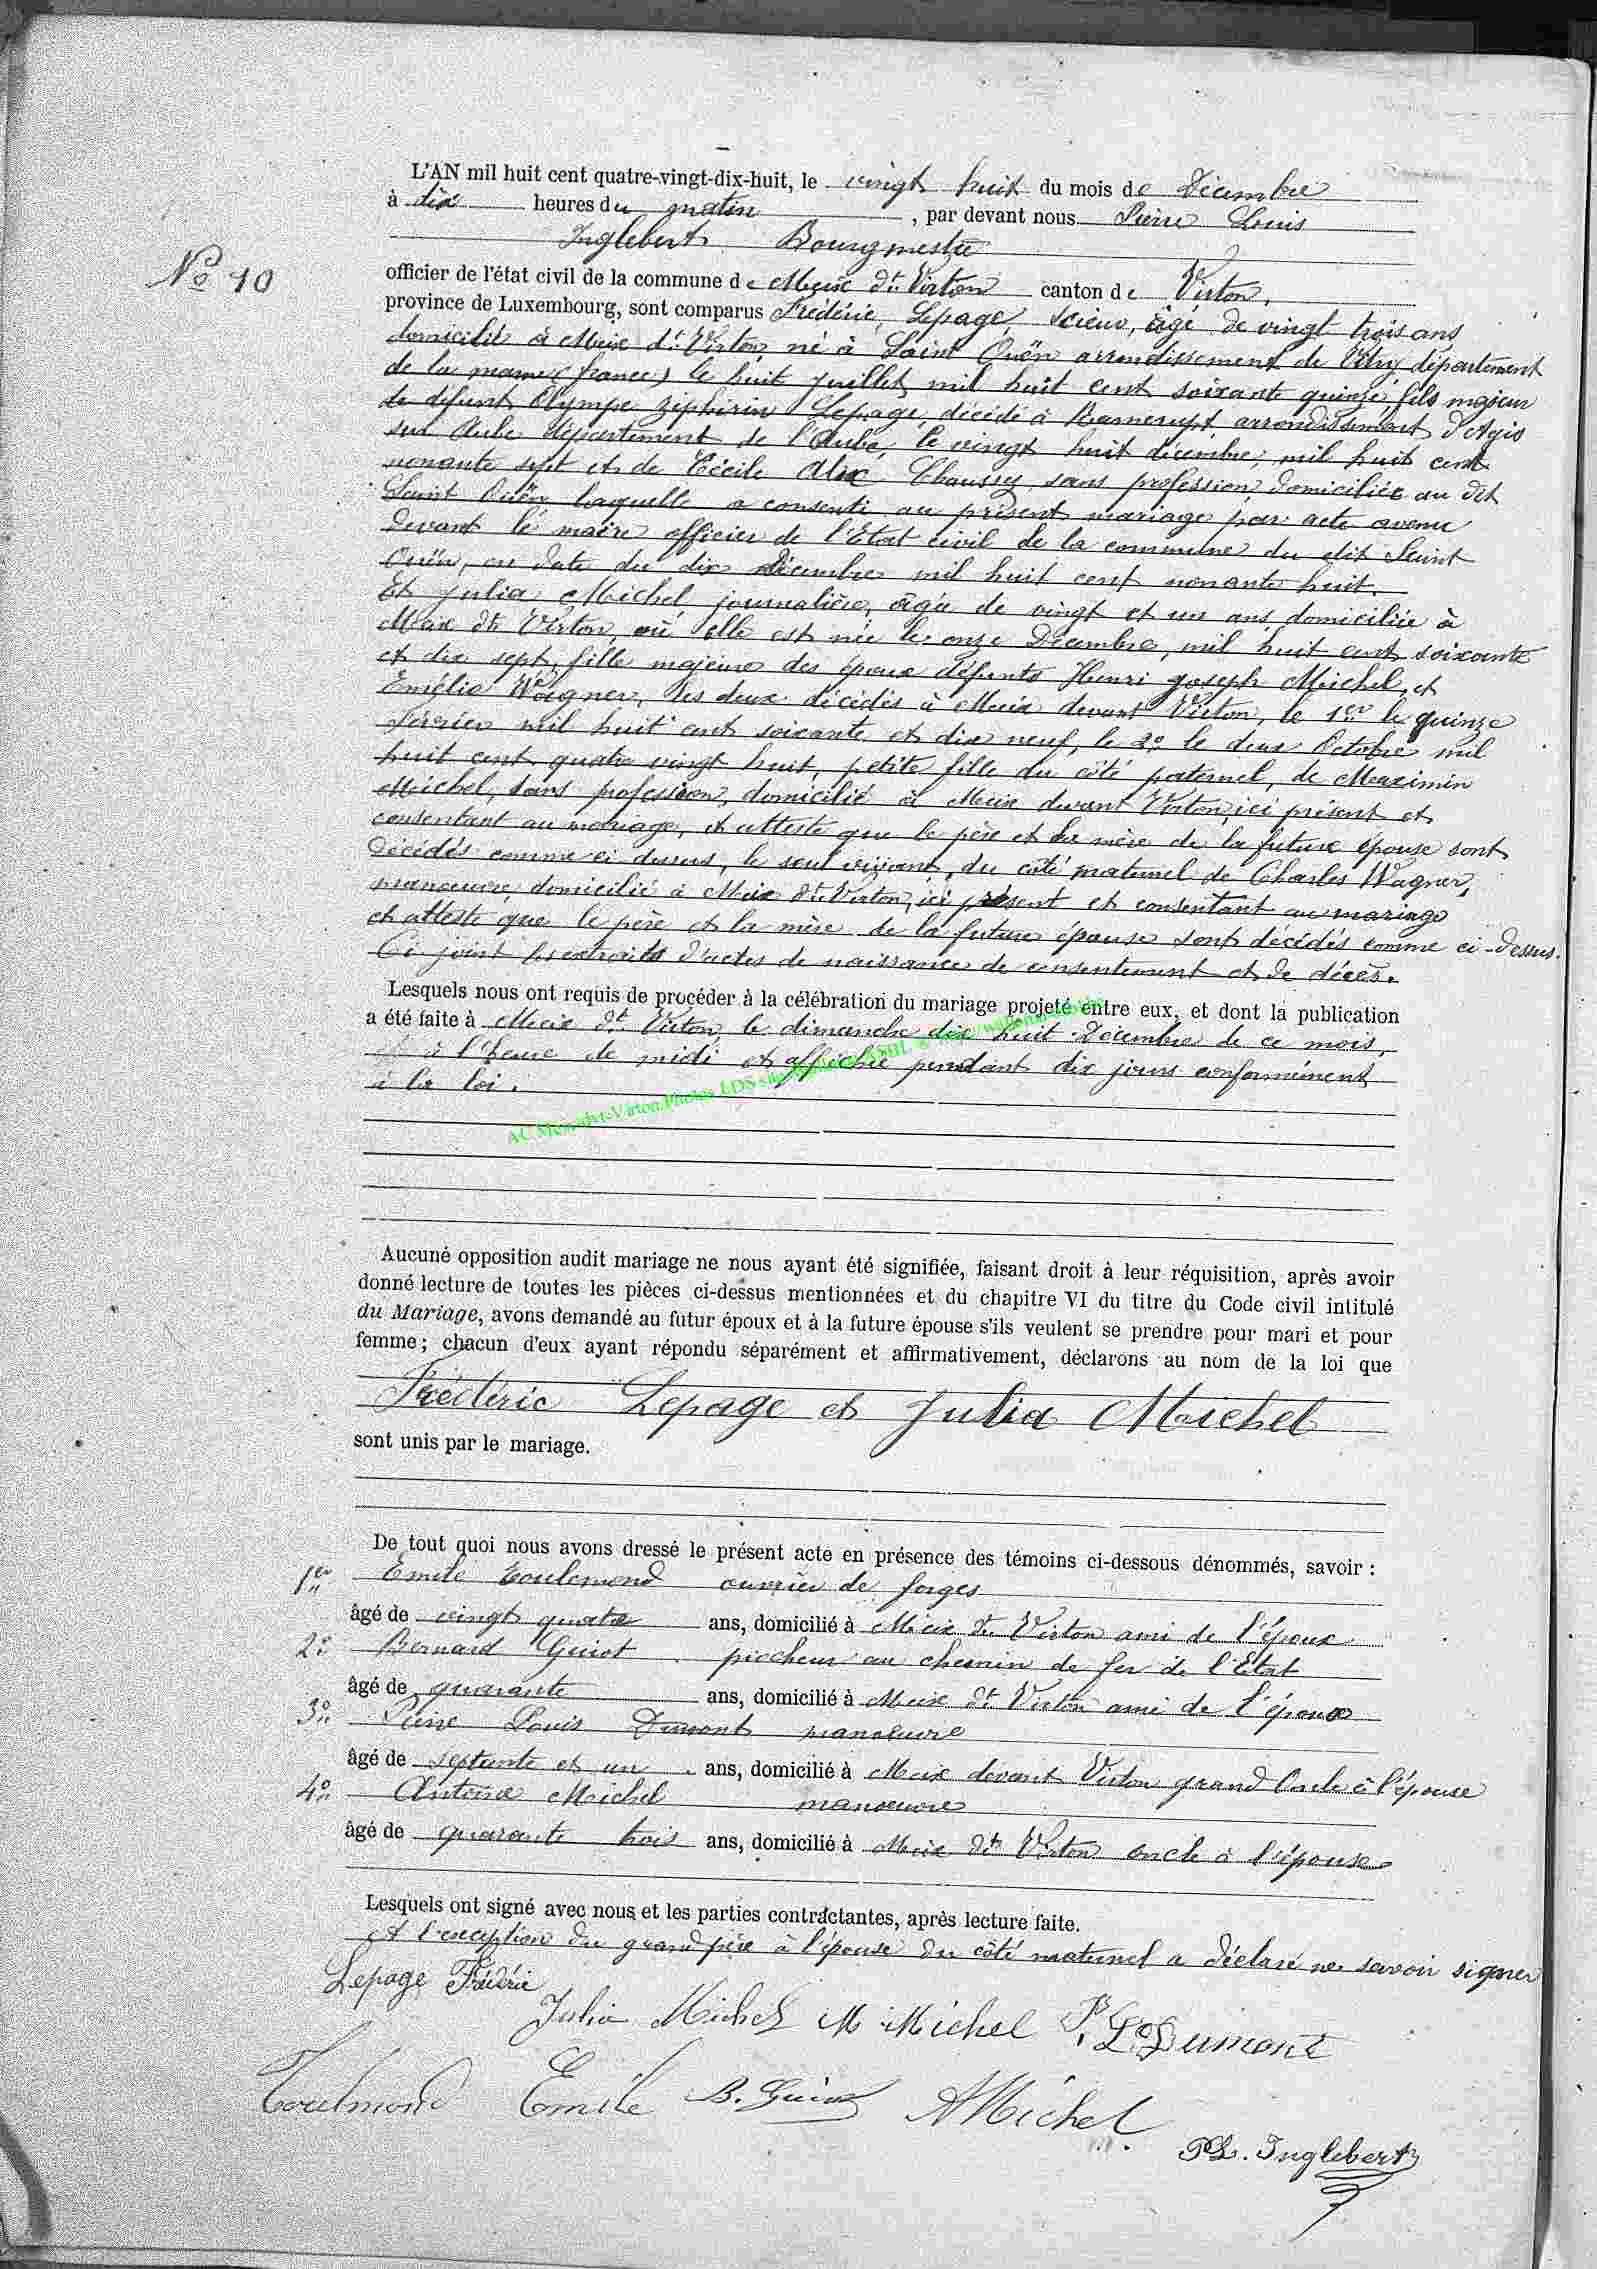 L'AN mil huit cent quatre-vingt-dix-huit, le vingt huit du mois de Décembre
à dix heures du matin, par devant nous Pierre Louis
Inglebert Bourgmestre
No 10
officier de l'état civil de la commune de Meix dt Virton canton de Virton,
province de Luxembourg, sont comparus Frédéric Lepage, scieur, âgé de vingt trois ans
domicilié à Meix dt Virton, né à Saint Ouën arrondissement de Vitry département
de la marne (france) le huit juillet mil huit cent soixante quinze fils majeur
de défunt Olympe Zéphirin Lepage, décédé à Ramerupt arrondissement d'Arçis
sur Aube département de l'Aube, le vingt huit décembre, mil huit cent
nonante sept et de Cécile Alix Chaussy, sans profession, domiciliée au dit
Saint Ouën, laquelle a consenti au présent mariage par acte avenu
devant le maire officier de l'Etat civil de la commune du dit Saint
Ouën, en date du dix Décembre mil huit cent nonante huit.
Et Julia Michel, journalière, âgée de vingt et un ans domiciliée à
Meix dt Virton, où elle est née le onze Décembre, mil huit cent soixante
et dix sept, fille majeure des époux défunts Henri Joseph Michel, et
Emélie Wagner, les deux décédés à Meix devant Virton, le 1er le quinze
Février mil huit cent soixante et dix neuf, le 2e le deux Octobre mil
huit cent quatre vingt huit, petite fille du côté paternel, de Maximin
Michel, sans profession, domicilié à Meix devant Virton, ici présent et
consentant au mariage, et atteste que le père et la mère de la future épouse sont
décédés comme ci dessus, le seul vivant, du côté maternel de Charles Wagner,
manoeuvre, domicilié à Meix dt Virton, ici présent et consentant au mariage
et atteste que le père et la mère de la future épouse sont décédés comme ci-dessus.
Ci joint les extraits d'actes de naissance de consentement et de décès.
Lesquels nous ont requis de procéder à la célébration du mariage projeté entre eux, et dont la publication
a été faite à Meix dt Virton, le dimanche dix huit Décembre de ce mois,
à l'heure de midi et affichée pendant dix jours conformément
à la loi.
AC Meix-dvt-Virton.Photos LDS
Aucune opposition audit mariage ne nous ayant été signifiée, faisant droit à leur réquisition, après avoir
donné lecture de toutes les pièces ci-dessus mentionnées et du chapitre VI du titre du Code civil intitulé
du Mariage, avons demandé au futur époux et à la future épouse s'ils veulent se prendre pour mari et pour
femme; chacun d'eux ayant répondu séparément et affirmativement, déclarons au nom de la loi que
Frédéric Lepage et Julia Michel
sont unis par le mariage.
De tout quoi nous avons dressé le présent acte en présence des témoins ci-dessous dénommés, savoir :
1er Emile Toulemond ouvrier de forges
âgé de vingt quatre ans, domicilié à Meix dt Virton ami de l'époux
2e Bernard Guiot piocheur au chemin de fer de l'Etat
âgé de quarante ans, domicilié à Meix dt Virton ami de l'époux
3e Pierre Louis Dumont manoeuvre
âgé de septante et un ans, domicilié à Meix devant Virton grand Oncle à l'épouse
4e Antoine Michel manoeuvre
âgé de quarante trois ans, domicilié à Meix dt Virton oncle à l'épouse
Lesquels ont signé avec nous et les parties contractantes, après lecture faite.
A l'exception du grand père à l'épouse du côté maternel a déclaré ne savoir signer
Lepage Frédéric
Julia Michel M Michel P. Ls Dumont
Toulmond Emile B. Guiot A Michel
PL. Inglebert